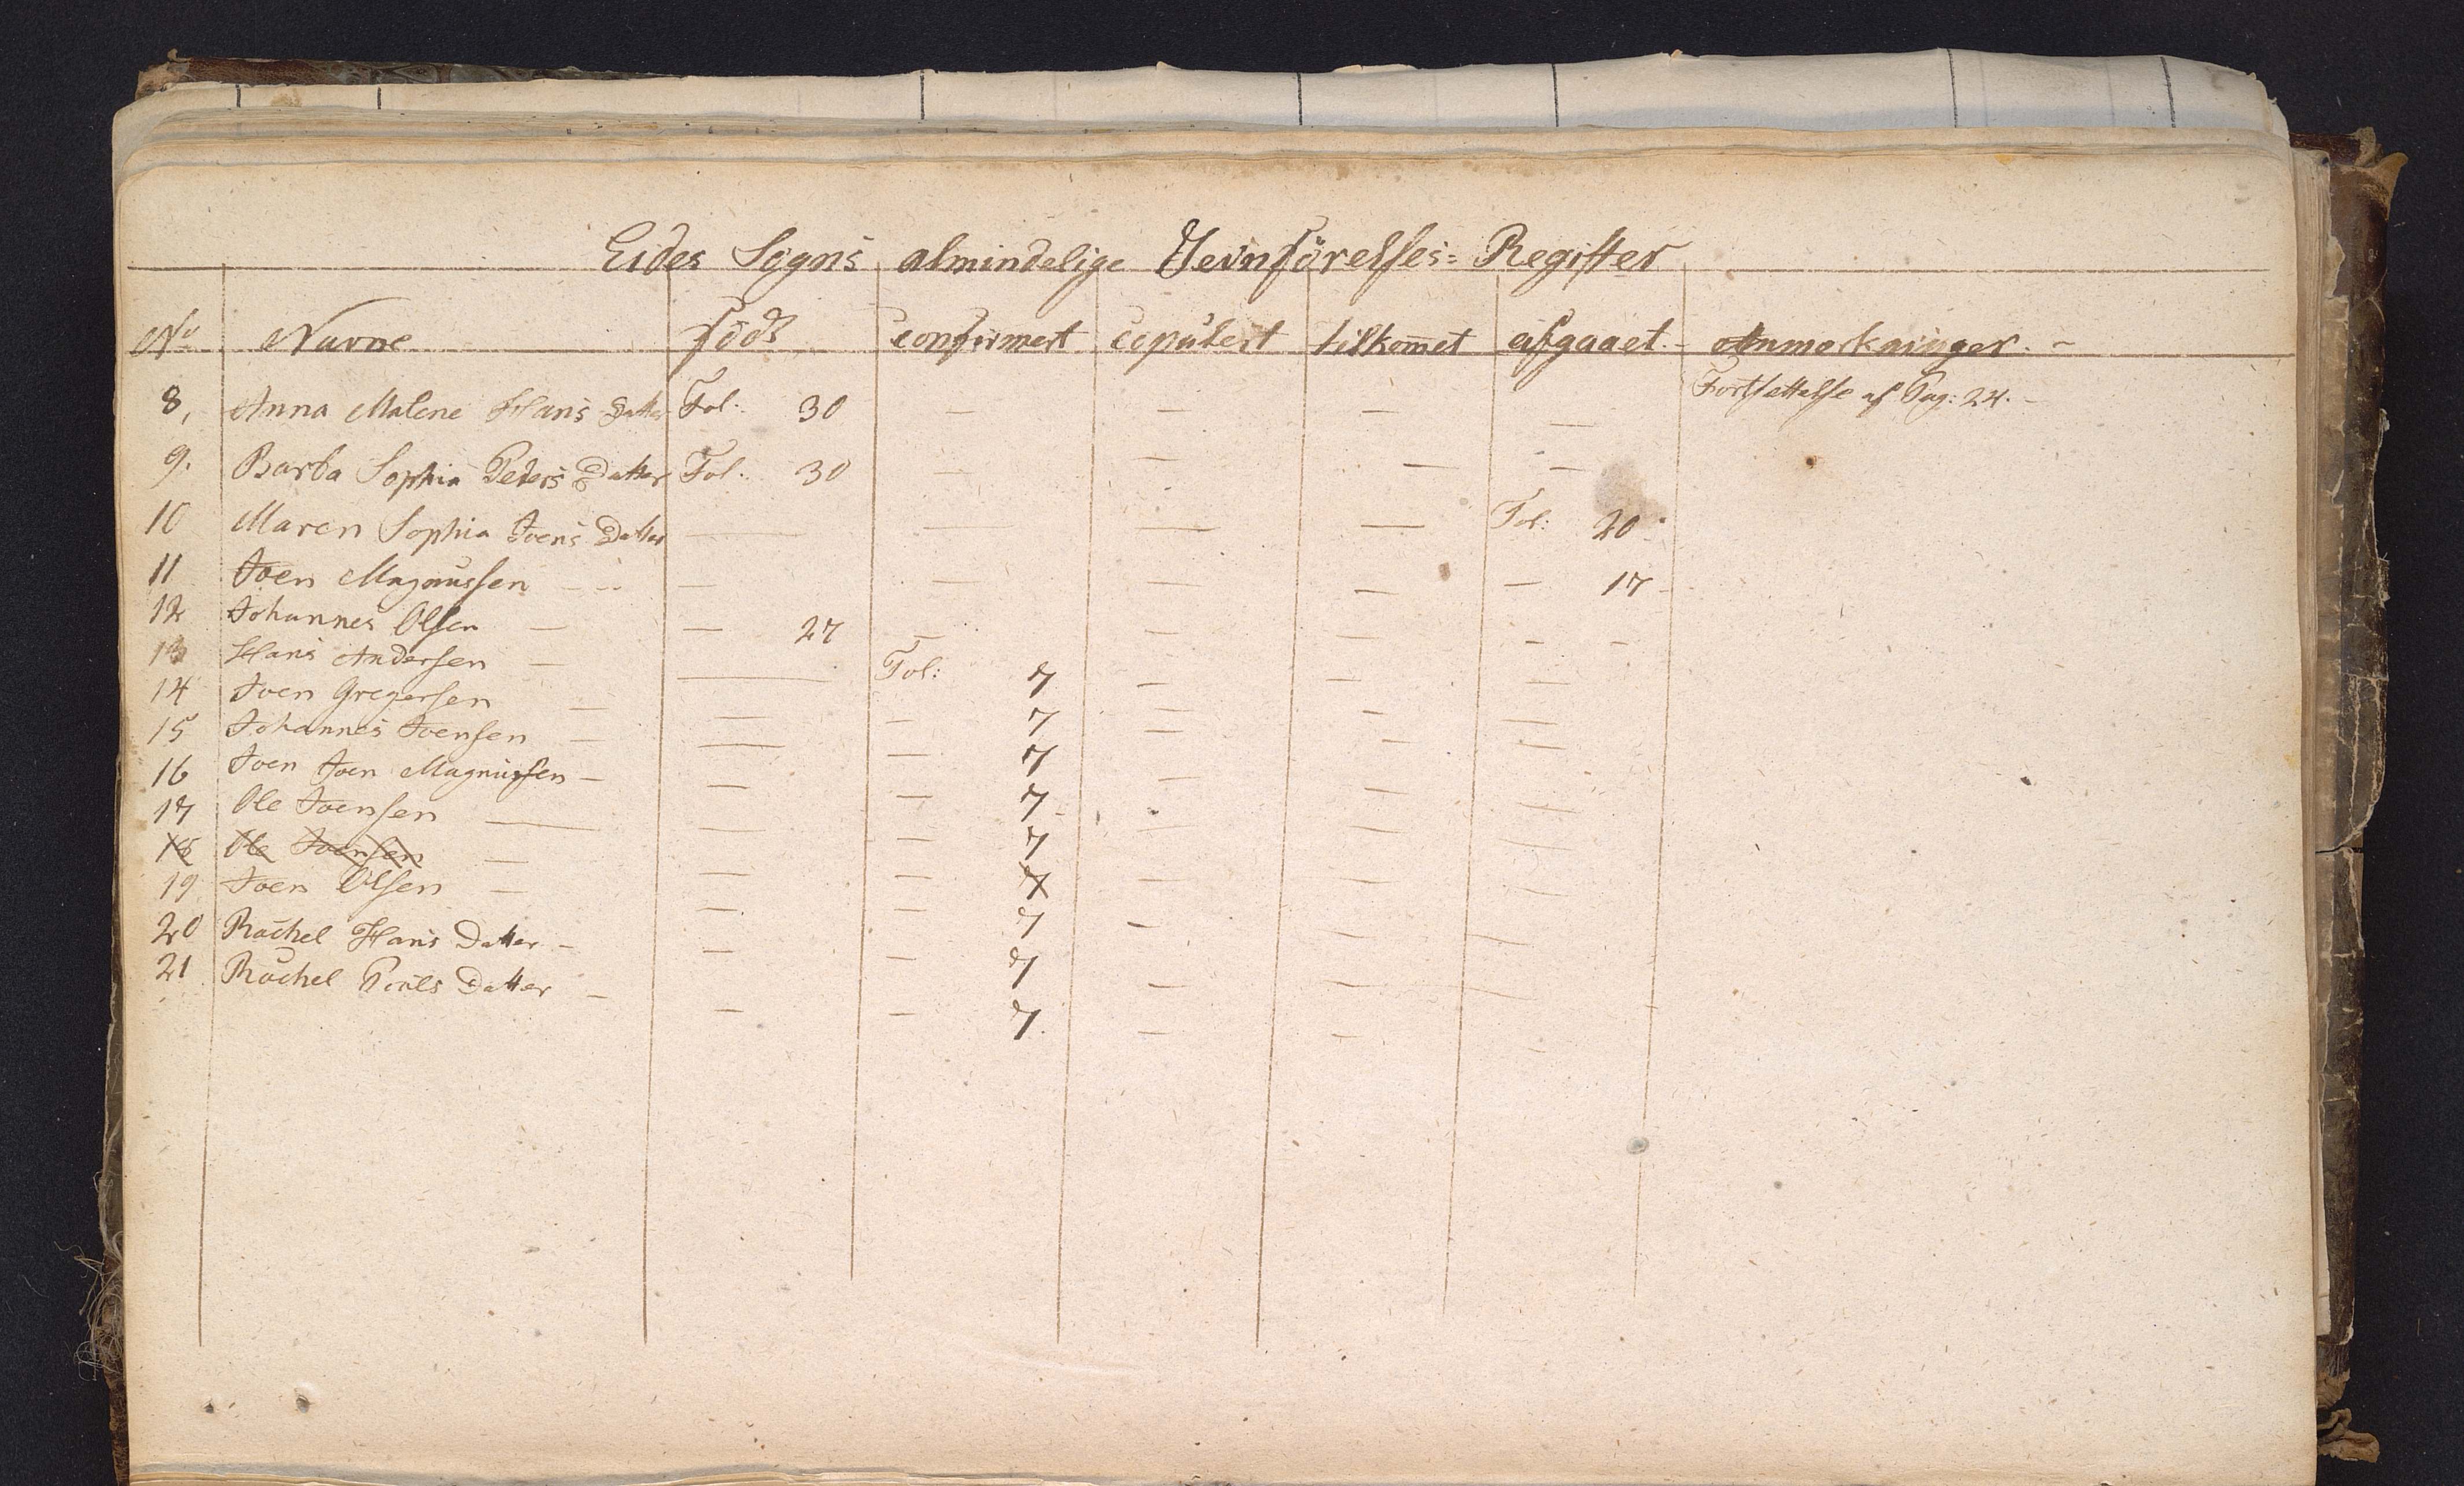 Eides Sogns almindelige Jevnförelses-Register
No Navne föd confirmert copulert tilkommet afgaaet Anmerkninger. -
8, Anna Malene Hans Datter Fol: 30 — — — — Fortsettelse af Pag: 24. -
9. Barba Sophia Peders Datter Fol: 30 — — — —
10 Maren Sophia Joens Datter — — — — Fol: 20
11 Joen Magnussen — — — — — — 17
12 Johannes Olsen — — 27 — — — - -
13 Hans Andersen — — Fol: 7 — — —
14 Joen Gregersen — — — 7 — — —
15 Johannes Joensen — — — 7 — — —
16 Joen Joen Magnussen — — — 7 — — —
17 Ole Joensen — — — 7 — — —
18 Ole Joensen — — — 7 — — —
19 Joen Olsen — — — 7 — — —
20 Rachel Hans Datter — — — 7 — — —
21 Rachel Poels Datter — — — 7. — —